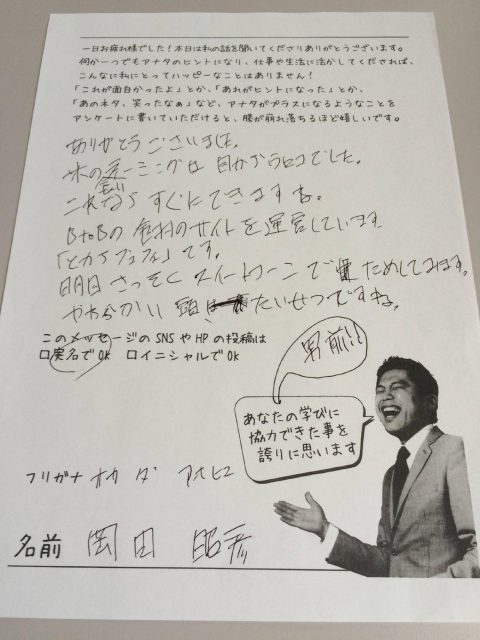 一日お疲れ様でした！本日は私の話を聞いてくださりありがとうございます。
何か一つでもアナタのヒントになり、仕事や生活に活かしてくだされば、
こんなに私にとってハッピーなことはありません！
「これが面白かったよ」とか、「あれがヒントになった」とか、
「あのネタ、笑ったなぁ」など、アナタがプラスになるようなことを
アンケートに書いていただけると、膝が崩れ落ちるほど嬉しいです。
ありがとうございました。
米のネーミングは目からウロコでした。
これならすぐにできますね。
BtoBの食材のサイトを運営しています
です。
明日さっそくスイートコーンでためしてみます。
やわらかい頭はたいせつですね。
このメッセージのSNSやHPの投稿は
□実名でOK □イニシャルでOK
男前!!
あなたの学びに
協力できた事を
誇りに思います
フリガナ オカダ アキヒコ
名前 岡田 昭彦